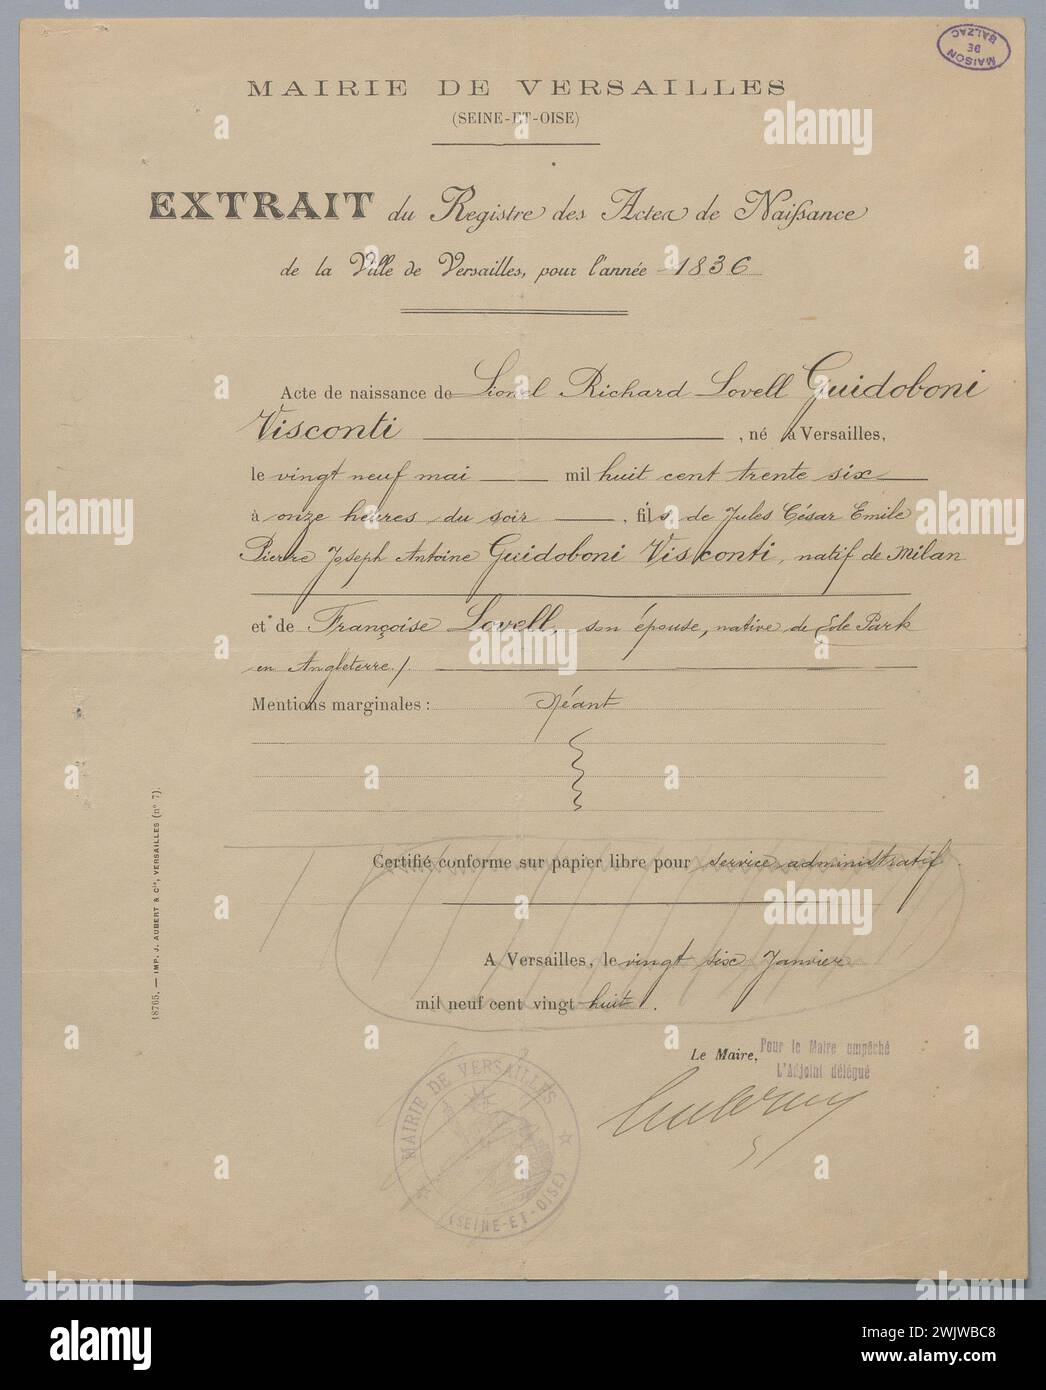 MAISON
DE
BALZAC
MAIRIE DE VERSAILLES
(SEINE-ET-OISE)
EXTRAIT du Registre des Actes de Naissance
de la Ville de Versailles, pour l'année 1836
Acte de naissance de Lionel Richard Lovell Guidoboni
Visconti, né à Versailles,
le vingt neuf mai mil huit cent trente six
à onze heures du soir, fils de Jules César Emile
Pierre Joseph Antoine Guidoboni Visconti, natif de Milan
et de Françoise Lovell, son épouse, native de Ede Park
en Angleterre./.
Mentions marginales : Néant
Certifié conforme sur papier libre pour service administratif.
A Versailles, le vingt six Janvier
mil neuf cent vingt huit.
Le Maire,
Pour le Maire empêché
L'Adjoint délégué
MAIRIE DE VERSAILLES
(SEINE-ET-OISE)
18765. — IMP. J. AUBERT & Cie, VERSAILLES (n° 7).
alamy
alamy
Image ID: 2WJWBC8
www.alamy.com